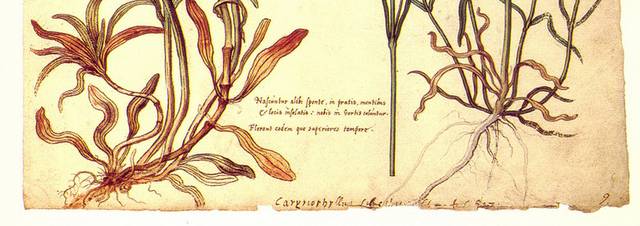 Nascuntur alibi sponte, in pratis, montibus
& locis insolatis: nobis in hortis coluntur.
Florent eodem quo superiores tempore.
Caryophyllus
9